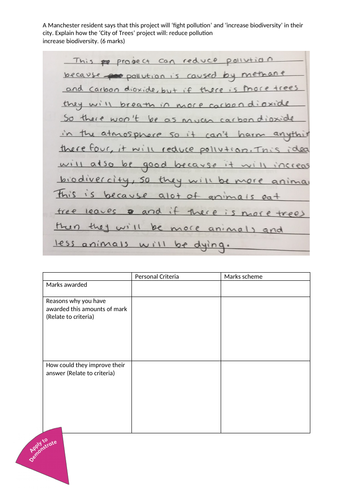 A Manchester resident says that this project will 'fight pollution' and 'increase biodiversity' in their
city. Explain how the 'City of Trees' project will: reduce pollution
increase biodiversity. (6 marks)
This project can reduce pollution
because pollution is caused by methane
and carbon dioxide, but if there is more trees
they will breath in more carbon dioxide
So there won't be as much carbon dioxide
in the atmosphere so it can't harm anythin
there four, it will reduce pollution. This idea
will also be good because it will increas
biodivercity, so they will be more anima
This is because alot of animals eat
tree leaves and if there is more trees
then they will be more animals and
less animals will be dying.
Personal Criteria Marks scheme
Marks awarded
Reasons why you have
awarded this amounts of mark
(Relate to criteria)
How could they improve their
answer (Relate to criteria)
Apply to
Demonstrate